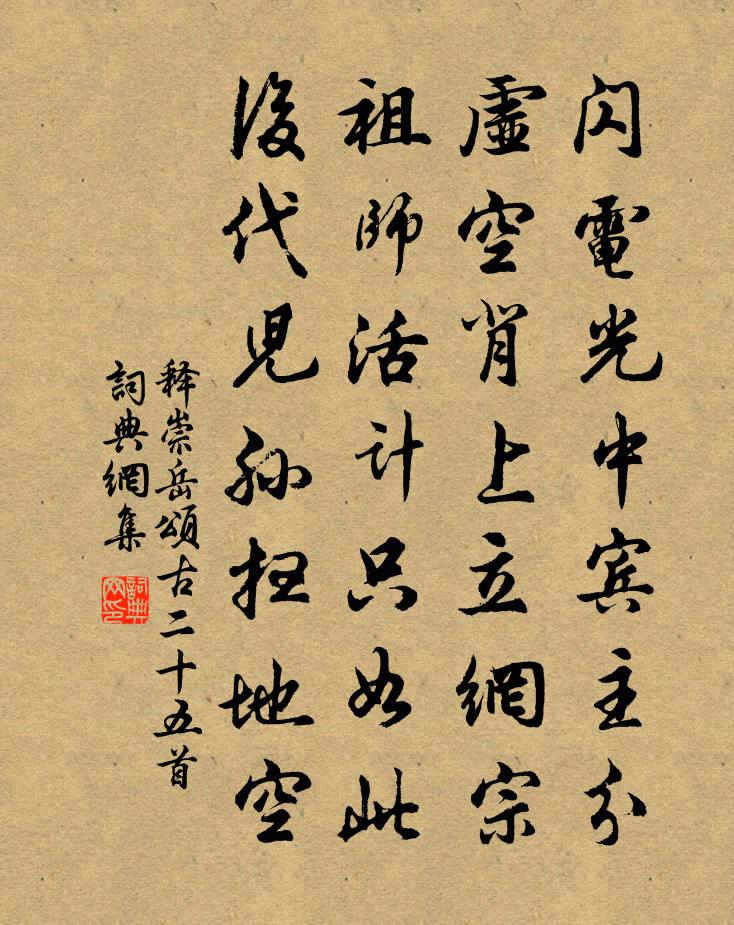 閃電光中宾主分
虛空背上立網宗
祖師活計只如此
後代児孫扫地空
释崇岳頌古二十五首
詞典網集
詞典网印